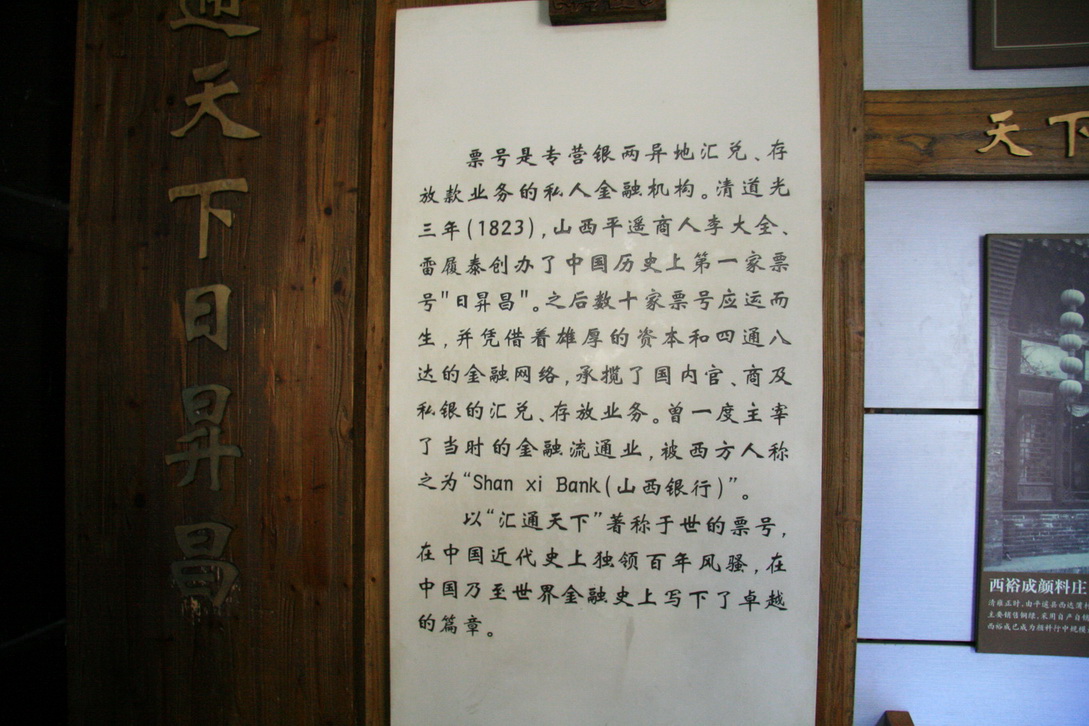 通天下日昇昌
票号是专营银两异地汇兑、存
放款业务的私人金融机构。清道光
三年(1823),山西平遥商人李大全、
雷履泰创办了中国历史上第一家票
号"日昇昌"。之后数十家票号应运而
生,并凭借着雄厚的资本和四通八
达的金融网络,承揽了国内官、商及
私银的汇兑、存放业务。曾一度主宰
了当时的金融流通业,被西方人称
之为“Shan xi Bank(山西银行)”。
以“汇通天下”著称于世的票号,
在中国近代史上独领百年风骚,在
中国乃至世界金融史上写下了卓越
的篇章。
天下
西裕成颜料庄